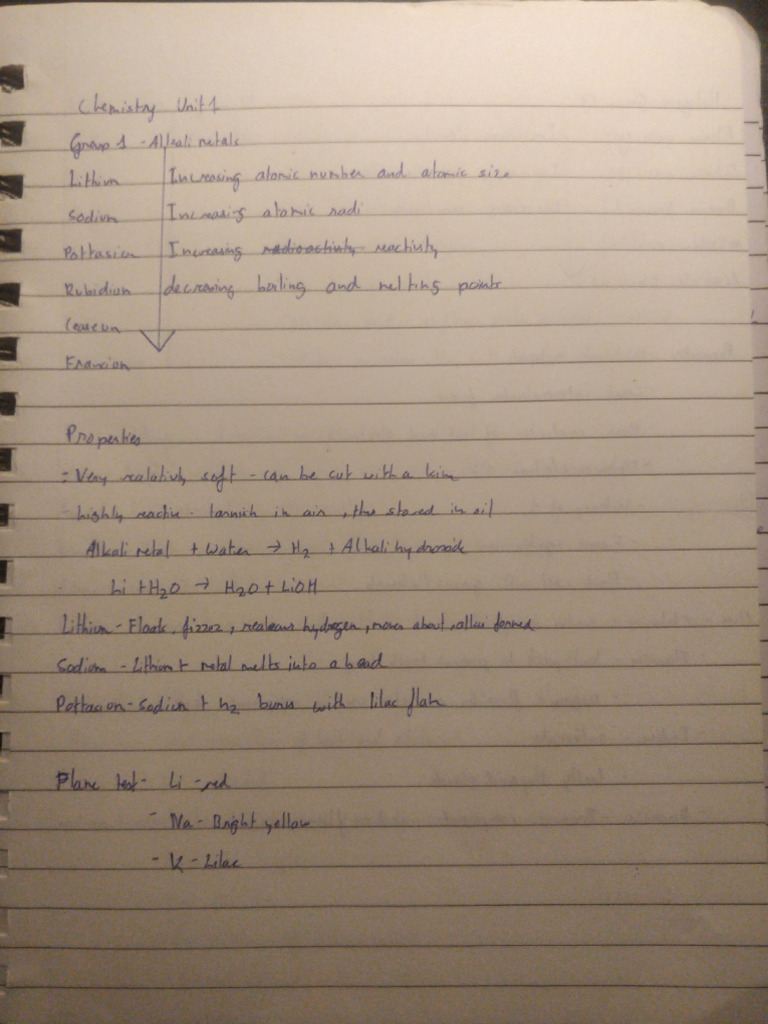 Chemistry Unit 1
Group 1 - Alkali metals
Lithium Increasing atomic number and atomic size
Sodium Increasing atomic radi
Pottasium Increasing radioactivity reactivity
Rubidium decreasing boiling and melting points
Francium
Properties
- Very realatively soft - can be cut with a
- highly reactive - tarnish in air, thus stored in oil
Alkali metal + Water → H2 + Alkali hydroxide
Li + H2O → H2O + LiOH
Lithium - Floats, fizzez, realeases hydrogen, moves about, formed
Sodium - Lithium + metal melts into a bead
Pottasium - Sodium + h2 burns with lilac
Flame test - Li - red
- Na - Bright yellow
- K - Lilac